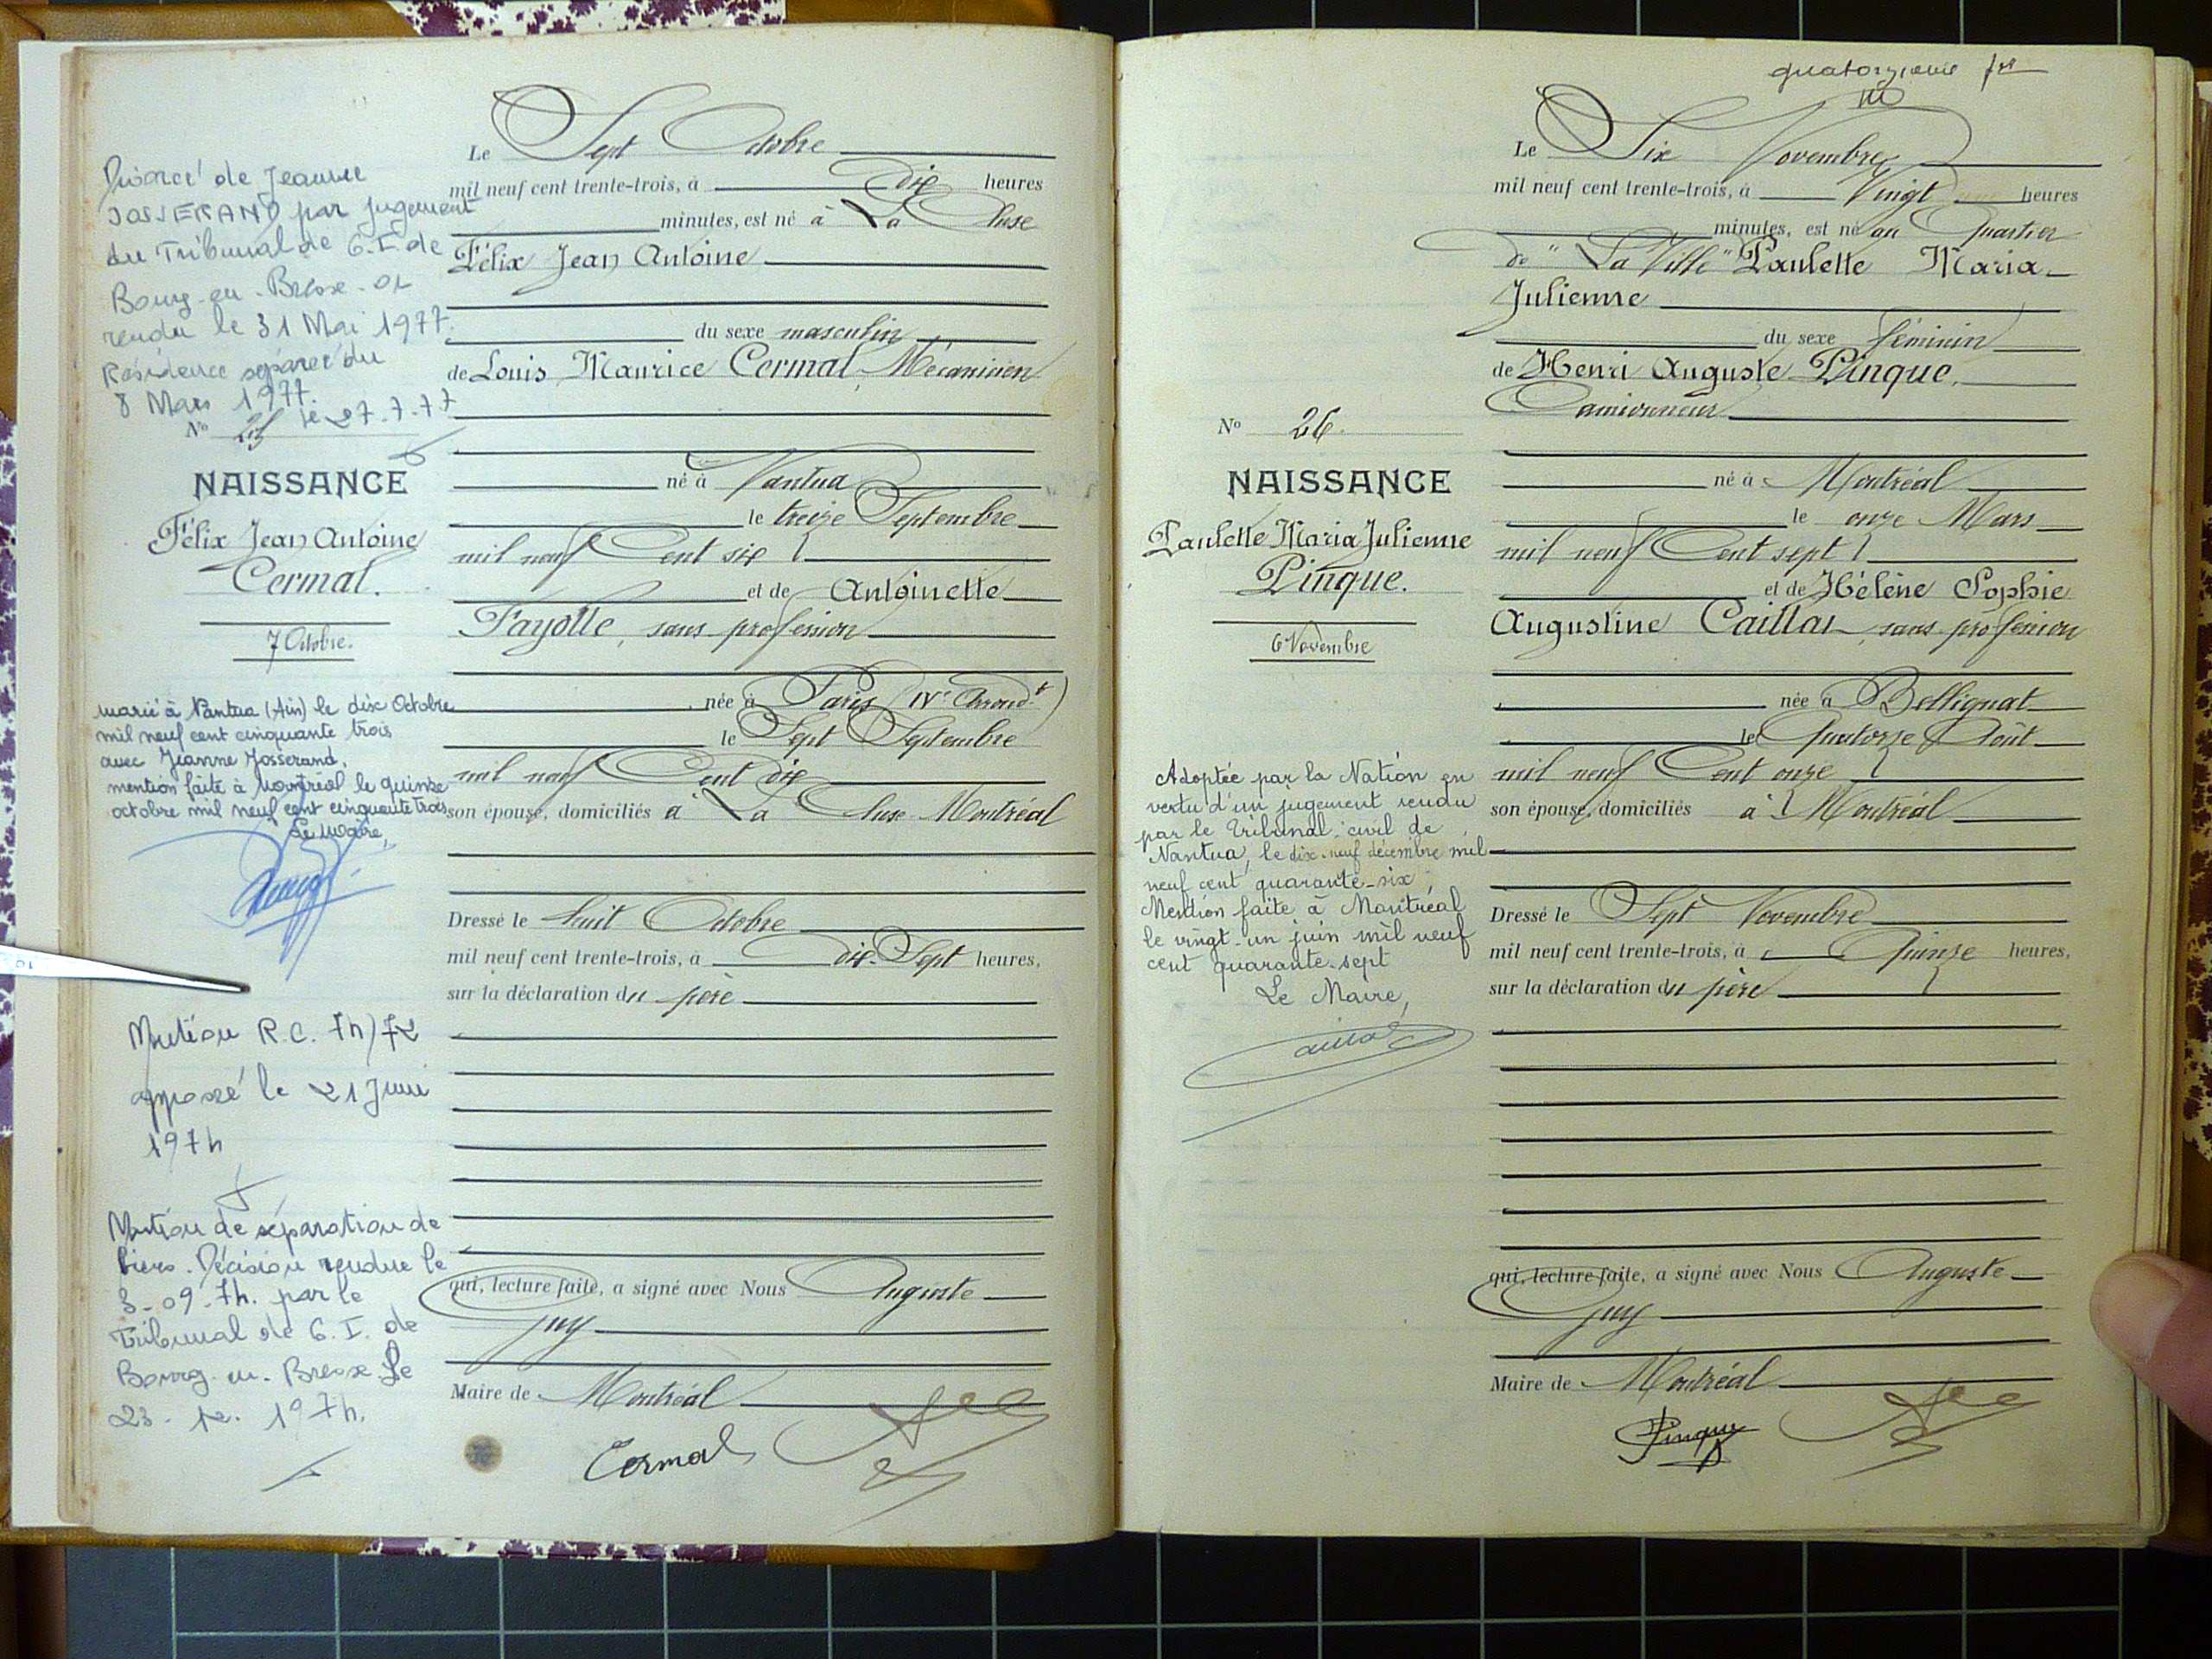 Divorcé de Jeanne
JOSSERAND par jugement
du Tribunal de G.I. de
Bourg-en-Bresse
rendu le 31 Mai 1977.
Résidence séparée du
8 Mars 1977.
le 27.7.77
N° 25
NAISSANCE
Félix Jean Antoine
Cermal.
7 Octobre.
marié à Nantua (Ain) le dix Octobre
mil neuf cent cinquante trois
avec Jeanne Josserand.
mention faite à Montréal le quinze
octobre mil neuf cent cinquante trois
Le Maire,
Mention R.C. 74/72
apposé le 21 Juin
1974
Mention de séparation de
biens. Décision rendue le
3-09-74. par le
Tribunal de G.I. de
Bourg-en-Bresse. Le
23-12-1974.
Le Sept Octobre
mil neuf cent trente-trois, à dix heures
minutes, est né à La Cluse
Félix Jean Antoine
du sexe masculin
de Louis Maurice Cermal, Mécanicien
né à Nantua
le treize Septembre
mil neuf Cent six
et de Antoinette
Fayolle, sans profession
née à Paris (IVe Arrondt)
le Sept Septembre
mil neuf Cent dix
son épouse, domiciliés à La Cluse Montréal
Dressé le huit Octobre
mil neuf cent trente-trois, à dix-Sept heures,
sur la déclaration du père
qui, lecture faite, a signé avec Nous Auguste
Guy
Maire de Montréal
Cermal
quatorzième
Le Six Novembre
mil neuf cent trente-trois, à Vingt heures
minutes, est né au Quartier
de "La Ville" Paulette Maria
Julienne
du sexe féminin
de Henri Auguste Pinque,
Camionneur
né à Montréal
le onze Mars
mil neuf Cent sept
et de Hélène Sophie
Augustine Caillat, sans profession
née à Bellignat
le Quatorze Août
mil neuf Cent onze
son épouse, domiciliés à Montréal
Dressé le Sept Novembre
mil neuf cent trente-trois, à Quinze heures,
sur la déclaration du père
qui, lecture faite, a signé avec Nous Auguste
Guy
Maire de Montréal
Pinque
N° 26.
NAISSANCE
Paulette Maria Julienne
Pinque.
6 Novembre
Adoptée par la Nation en
vertu d'un jugement rendu
par le Tribunal civil de
Nantua, le dix-neuf décembre mil
neuf cent quarante-six
Mention faite à Montréal
le vingt-un juin mil neuf
cent quarante-sept
Le Maire,